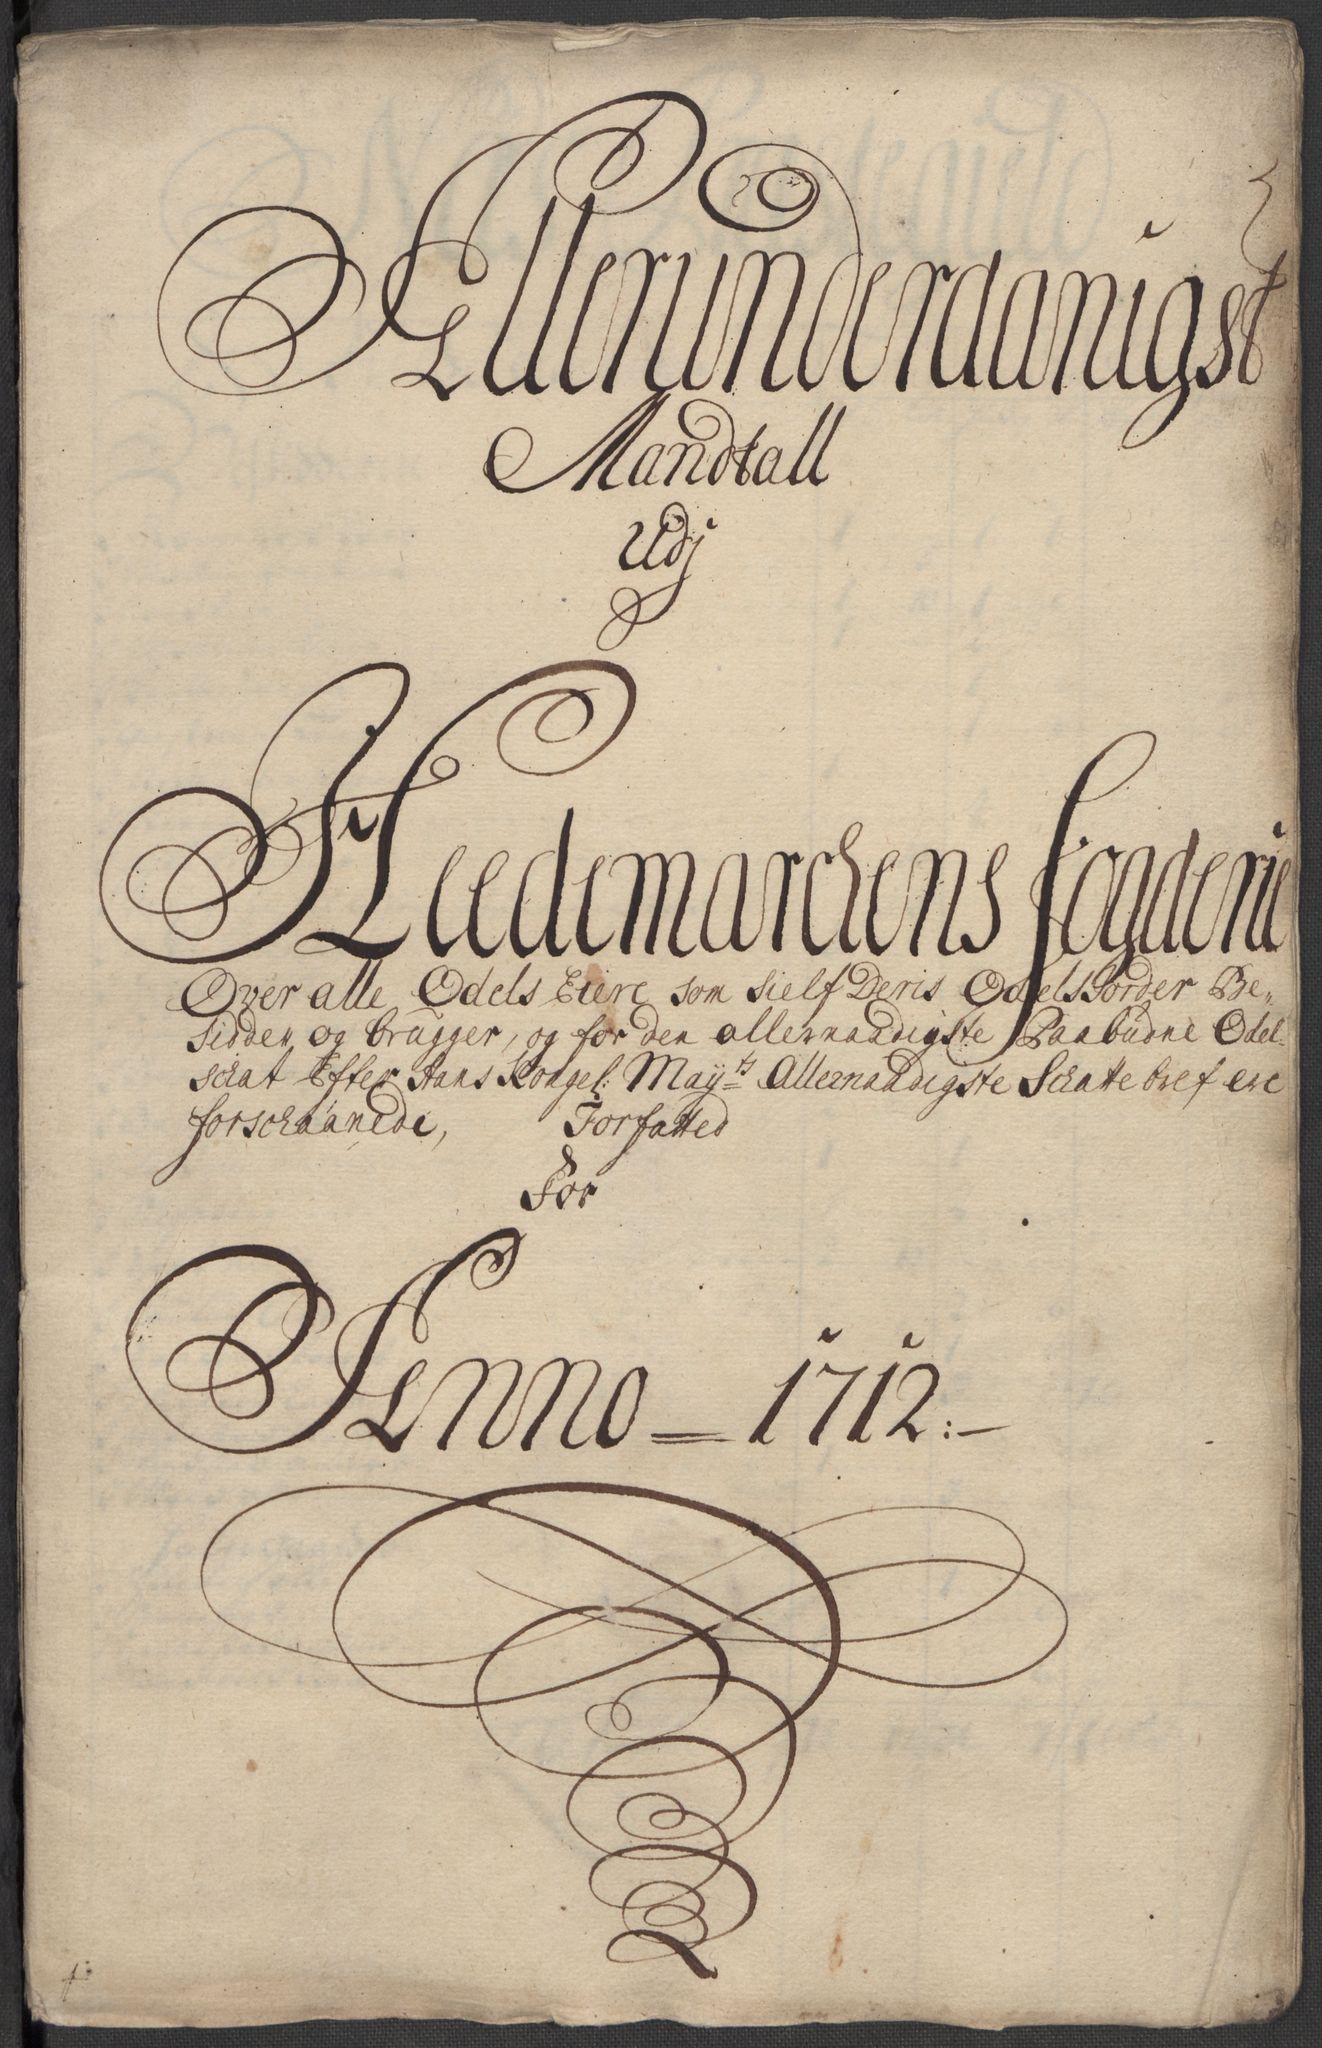 Allerunderdanigst
Mandtall
Udj
Heedemarchens fogderie
Over alle Odels Eiere som sielf Deris OdelsJorder Be„
sidder og brugger, og for den allernaadigste Paabudne Odel„
schat Efter Hans Kongel: May:ts Allernaadigste Schattebref ere
forschaanede, Forfatted
For
Anno = 1712:-